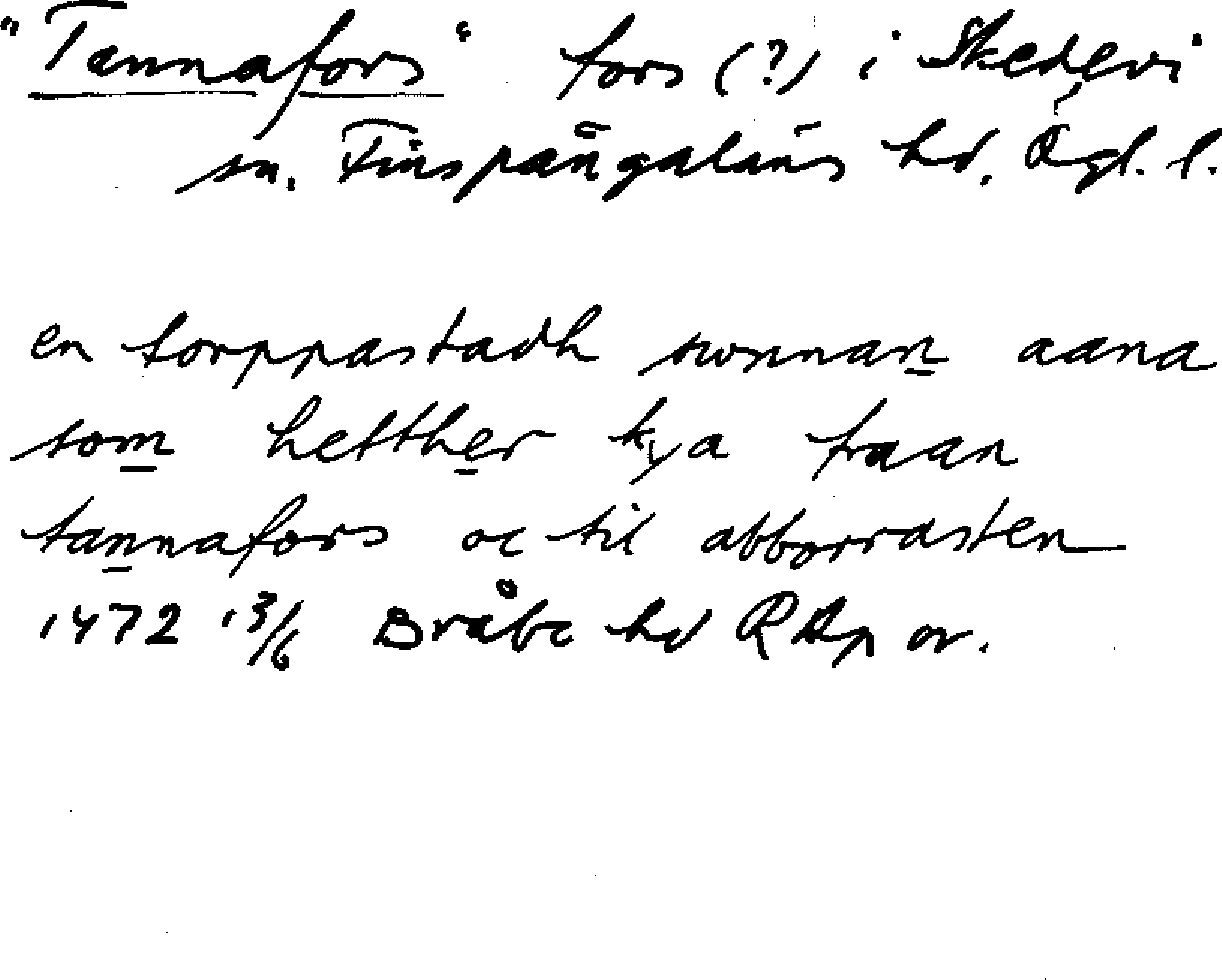 "Tannafors" fors (?) i Skedevi
sn. Finspångaläns hd. Ögl. l.
en torppastadh swnnan aana
som hetther kya fraan
tannafors oc til abborrasten
1472 13/6 Bråbo hd RAp or.